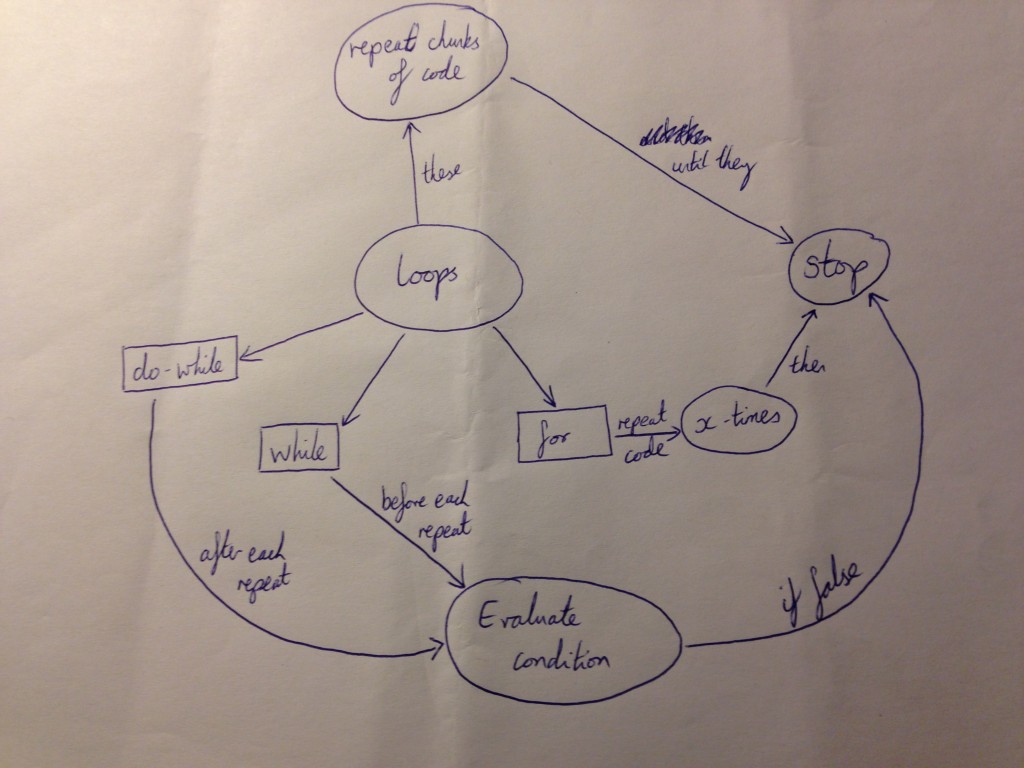 repeat chunks
of code
these
until they
loops
stop
do-while
while
for
repeat
code
x-times
then
before each
repeat
after each
repeat
Evaluate
condition
if false